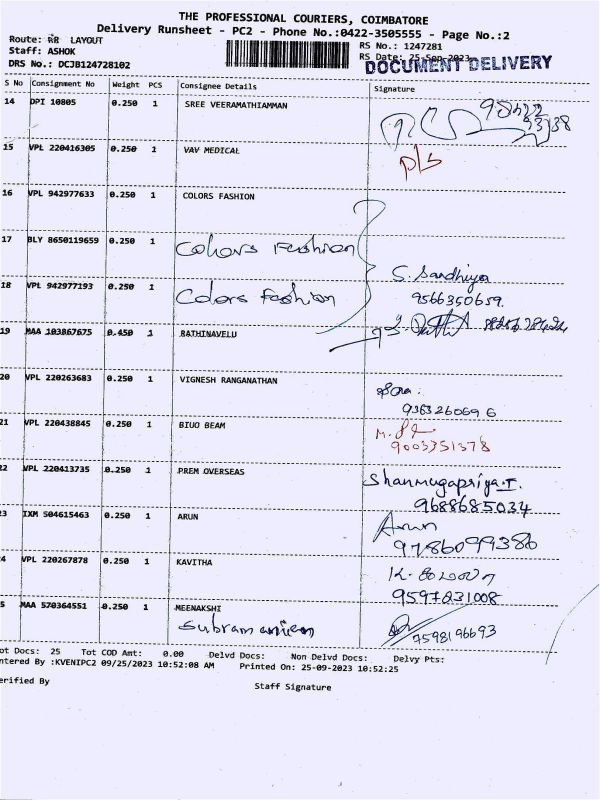 THE PROFESSIONAL COURIERS, COIMBATORE
Delivery Runsheet - PC2 - Phone No.:0422-3505555 - Page No.:2
Route: RR LAYOUT
RS No.: 1247281
Staff: ASHOK
RS Date: 25-Sep-2023
DRS No.: DCJB124728102
DOCUMENT DELIVERY
S No Consignment No Weight PCS Consignee Details Signature
14 DPI 10805 0.250 1 SREE VEERAMATHIAMMAN
15 VPL 220416305 0.250 1 VAV MEDICAL
16 VPL 942977633 0.250 1 COLORS FASHION
17 BLY 8650119659 0.250 1 Colors Fashion
18 VPL 942977193 0.250 1 Colors Fashion S. Sandhiya
9566350659.
19 MAA 103867675 0.450 1 RATHINAVELU
20 VPL 220263683 0.250 1 VIGNESH RANGANATHAN
9363260696
21 VPL 220438845 0.250 1 BIUO BEAM
9003351378
22 VPL 220413735 0.250 1 PREM OVERSEAS Shanmugapriya.T.
9688685034
23 IXM 504615463 0.250 1 ARUN Arun
9786099386
24 VPL 220267878 0.250 1 KAVITHA
9597631008
25 MAA 570364551 0.250 1 MEENAKSHI
Subramanian 7598196693
ot Docs: 25 Tot COD Amt: 0.00 Delvd Docs: Non Delvd Docs: Delvy Pts:
ntered By :KVENIPC2 09/25/2023 10:52:08 AM Printed On: 25-09-2023 10:52:25
erified By
Staff Signature